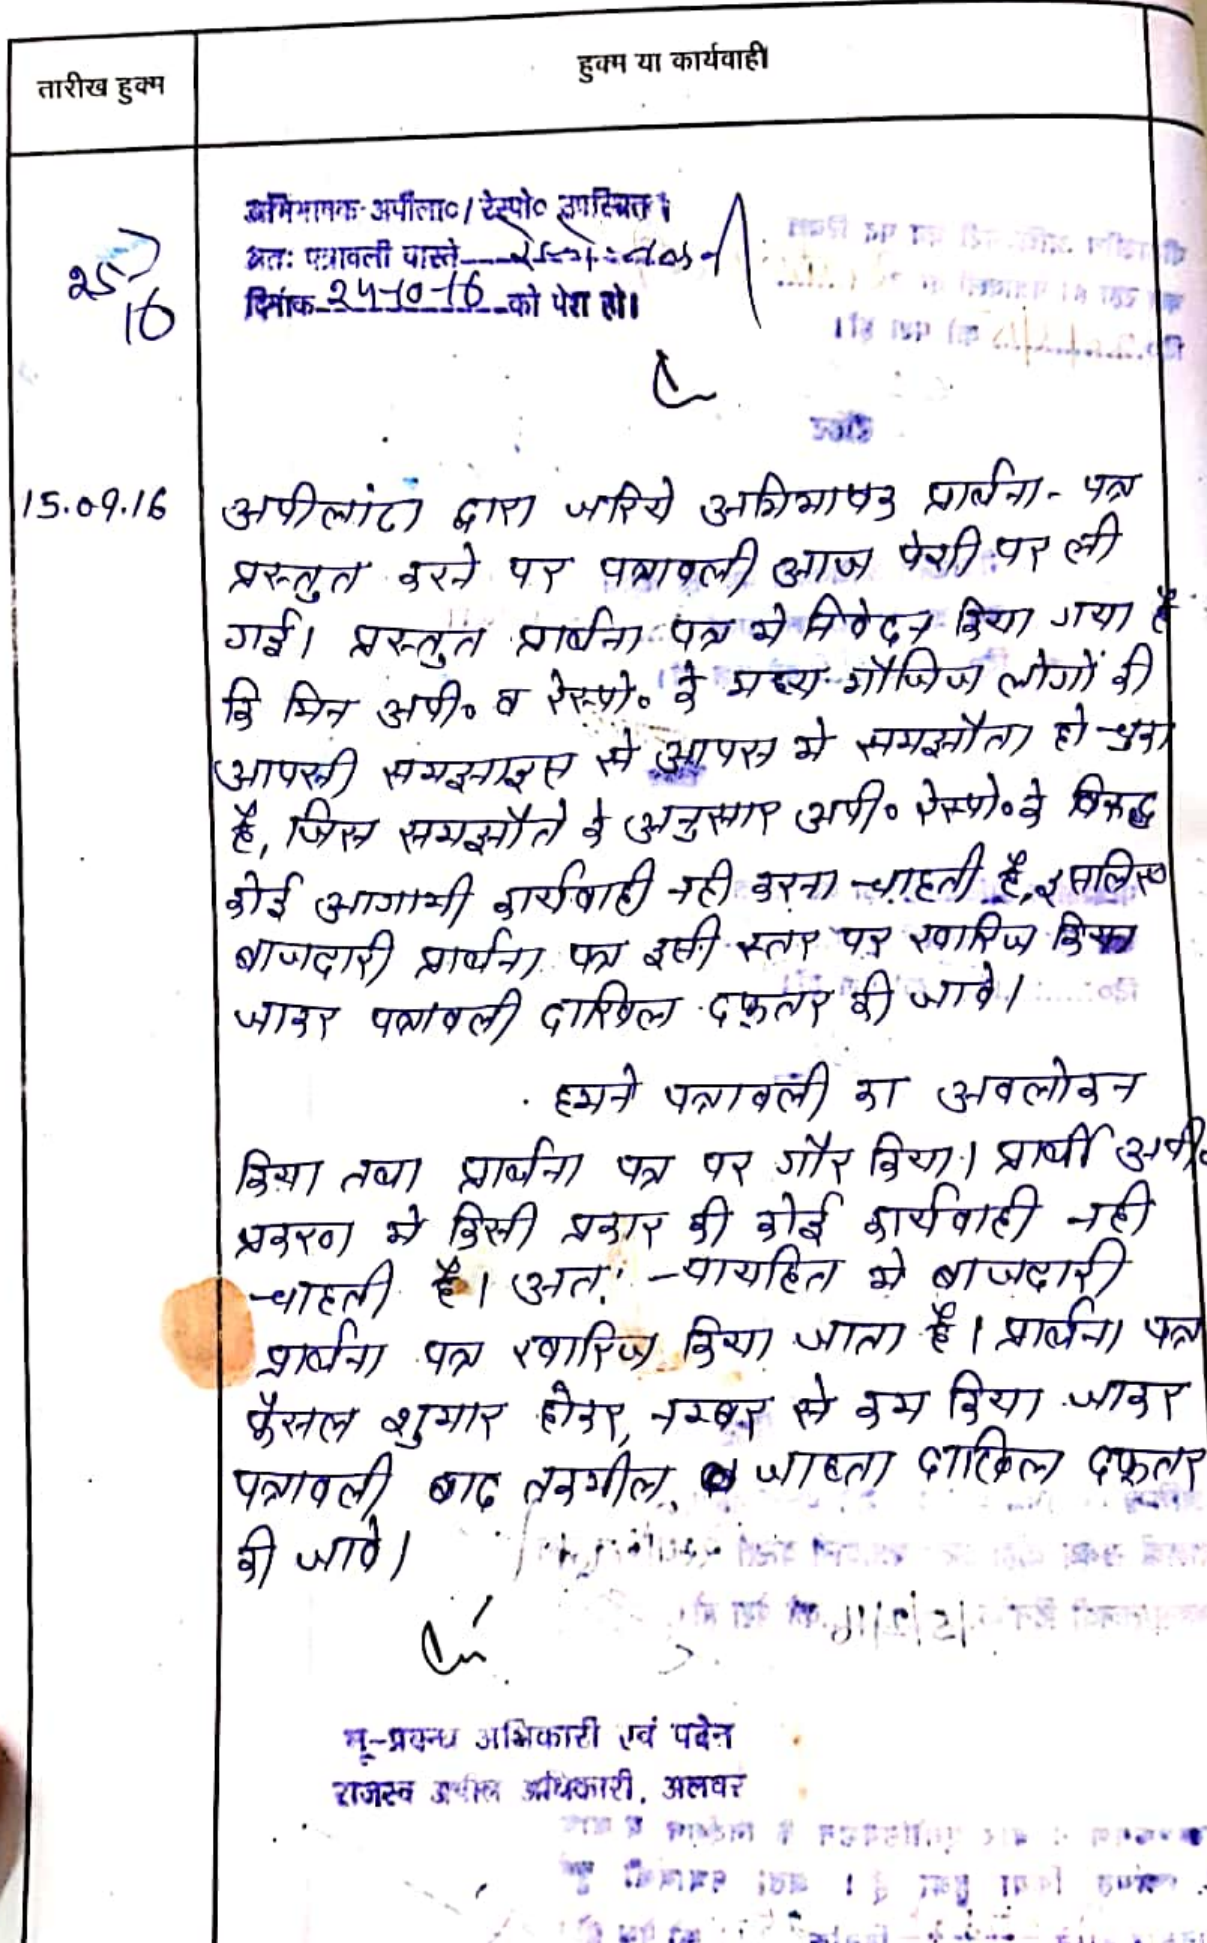 तारीख हुक्म
हुक्म या कार्यवाही
अभिभाषक अपीला०/रेस्पो० उपस्थित।
अतः पत्रावली वास्ते
दिनांक 24-10-16 को पेश हो।
25/7
16
15.09.16
अपीलांटा द्वारा जरिये अभिभाषक प्रार्थना-पत्र
प्रस्तुत करने पर पत्रावली आज पेशी पर ली
गई। प्रस्तुत प्रार्थना पत्र मे निवेदन किया गया है
कि मिन अपी० व रेस्पो० के मध्य मौजिज लोगों की
आपसी समझाइस से आपस मे समझौता हो चुका
है, जिस समझौते के अनुसार अपी० रेस्पो० के विरूद्ध
कोई आगामी कार्यवाही नही करना चाहती है, इसलिए
बाजदारी प्रार्थना पत्र इसी स्तर पर खारिज किया
जाकर पत्रावली दाखिल दफ्तर की जावे।
हमने पत्रावली का अवलोकन
किया तथा प्रार्थना पत्र पर गौर किया। प्रार्थी अपी०
प्रकरण मे किसी प्रकार की कोई कार्यवाही नही
चाहती है। अतः न्यायहित मे बाजदारी
प्रार्थना पत्र खारिज किया जाता है। प्रार्थना पत्र
फैसल शुमार होकर, नम्बर से कम किया जाकर
पत्रावली बाद तकमील जाब्ता दाखिल दफ्तर
की जावे।
भू-प्रबन्ध अधिकारी एवं पदेन
राजस्व अपील अधिकारी, अलवर